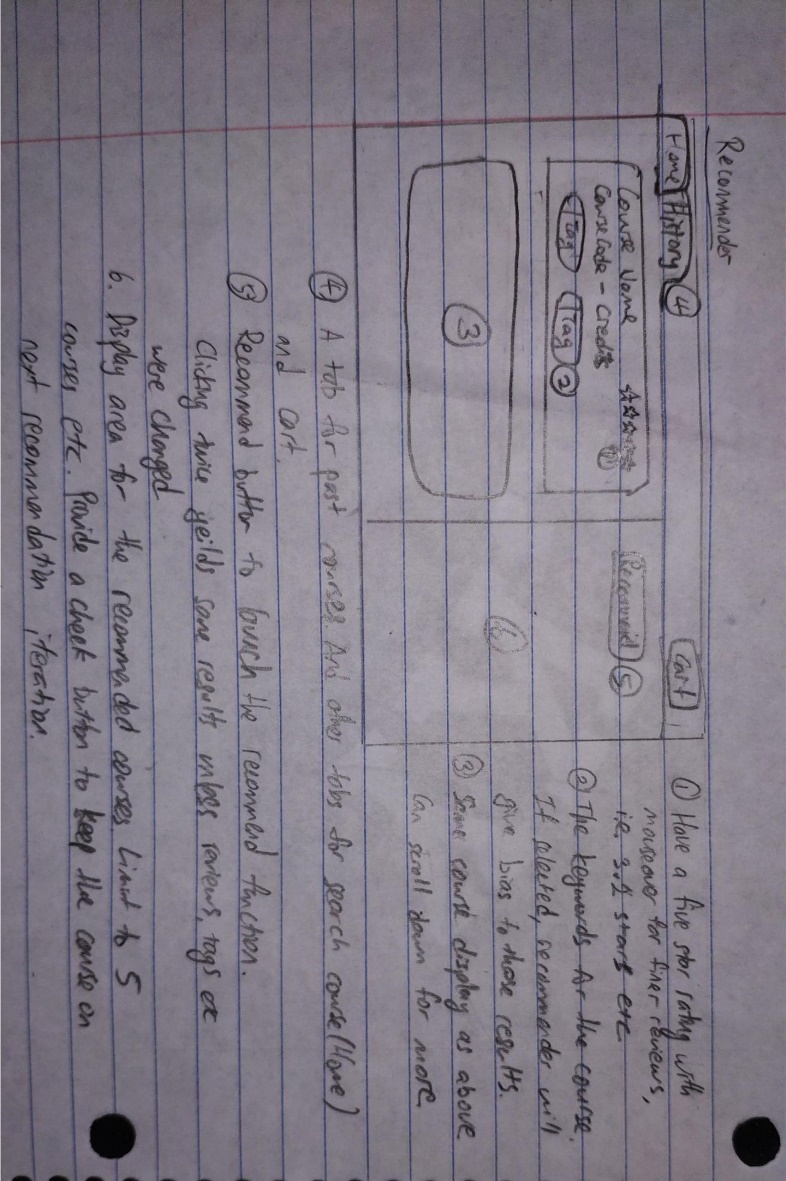 Recommender
Home History ④
Cart
Course Name
①
Course Code - Credits
Tag Tag ②
Recommend ⑤
③
⑥
① Have a five star rating with
mouseover for finer reviews,
i.e. 3.2 stars etc
② The keywords for the course.
If selected, recommender will
give bias to those results.
③ Same course display as above
Can scroll down for more.
④ A tab for past courses And other tabs for search course (Home)
and cart.
⑤ Recommend button to launch the recommend function.
Clicking twice yeilds same results unless reviews, tags etc
were changed
6. Display area for the recommended courses Limit to 5
courses etc. Provide a check button to keep the course on
next recommendation iteration.